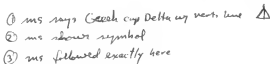 ① ms says Greek cap Delta w/ vert line ⍋
② ms shows symbol
③ ms followed exactly here